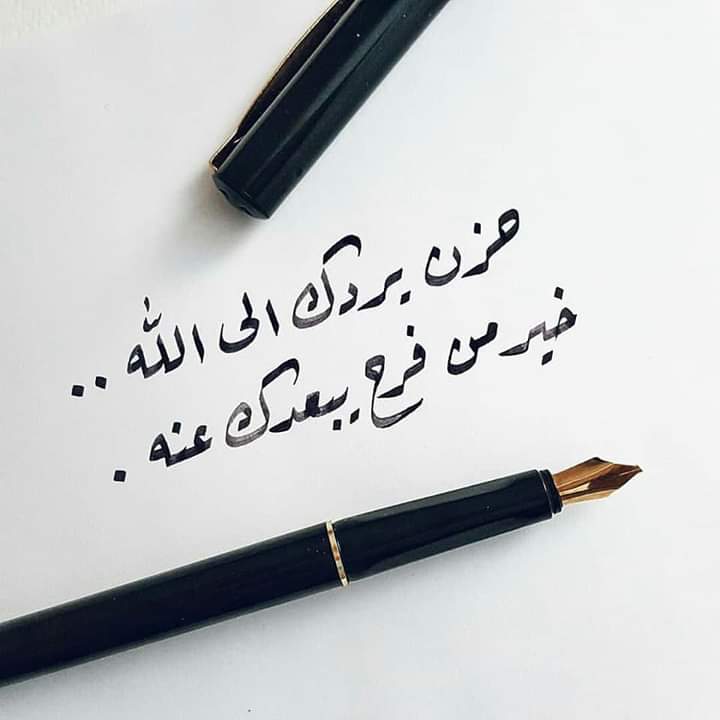 حزن يردك الى الله ..
خير من فرح يبعدك عنه .